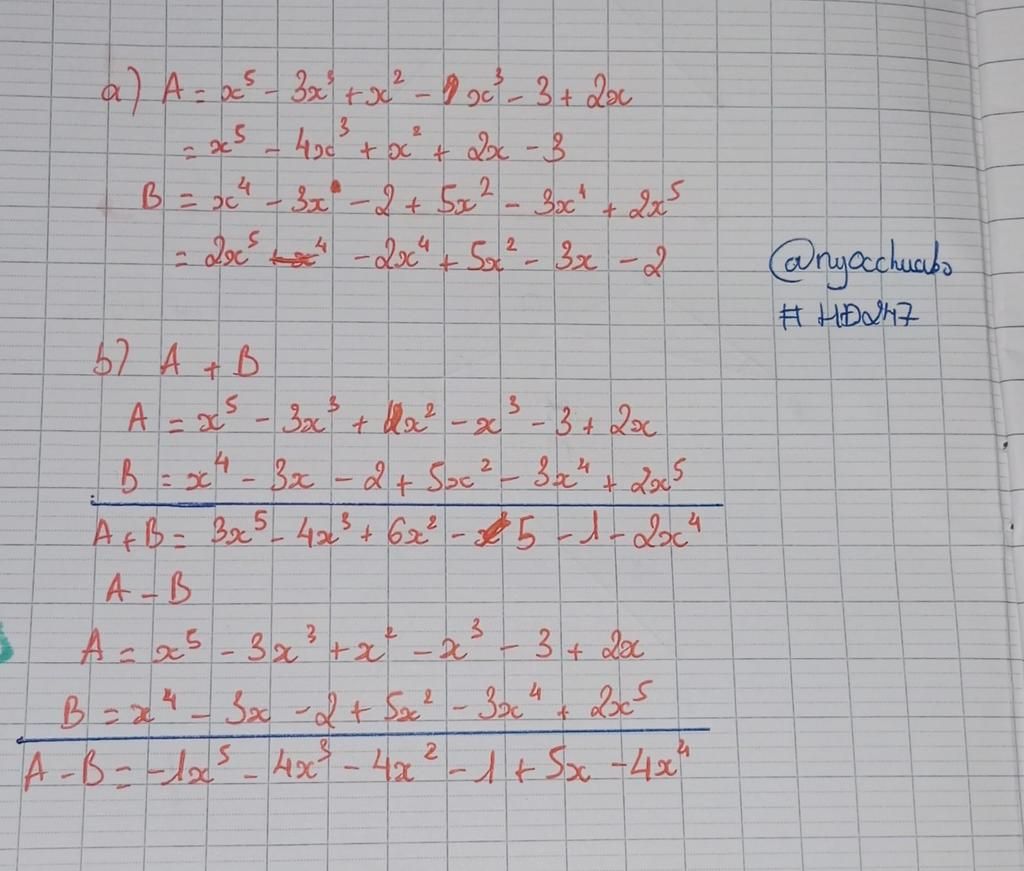 a) A = x⁵ - 3x³ + x² - x³ - 3 + 2x
= x⁵ - 4x³ + x² + 2x - 3
B = x⁴ - 3x - 2 + 5x² - 3x⁴ + 2x⁵
= 2x⁵ - 2x⁴ + 5x² - 3x - 2
@nyocchuabo
# HD247
b) A + B
A = x⁵ - 3x³ + x² - x³ - 3 + 2x
B = x⁴ - 3x - 2 + 5x² - 3x⁴ + 2x⁵
A + B = 3x⁵ - 4x³ + 6x² - 5 - 1 - 2x⁴
A - B
A = x⁵ - 3x³ + x² - x³ - 3 + 2x
B = x⁴ - 3x - 2 + 5x² - 3x⁴ + 2x⁵
A - B = -1x⁵ - 4x³ - 4x² - 1 + 5x - 4x⁴